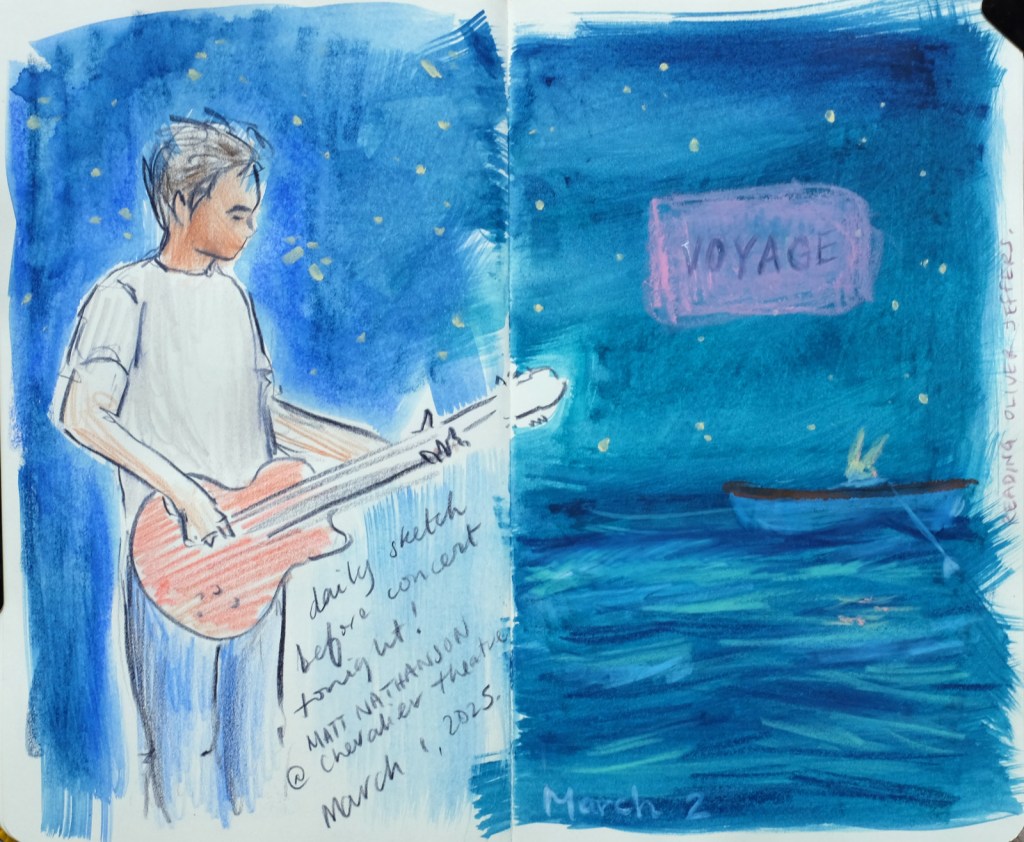 daily sketch
before concert
tonight!
MATT NATHANSON
@ Chevalier theatre
March 1, 2025.
VOYAGE
READING OLIVER JEFFERS.
March 2